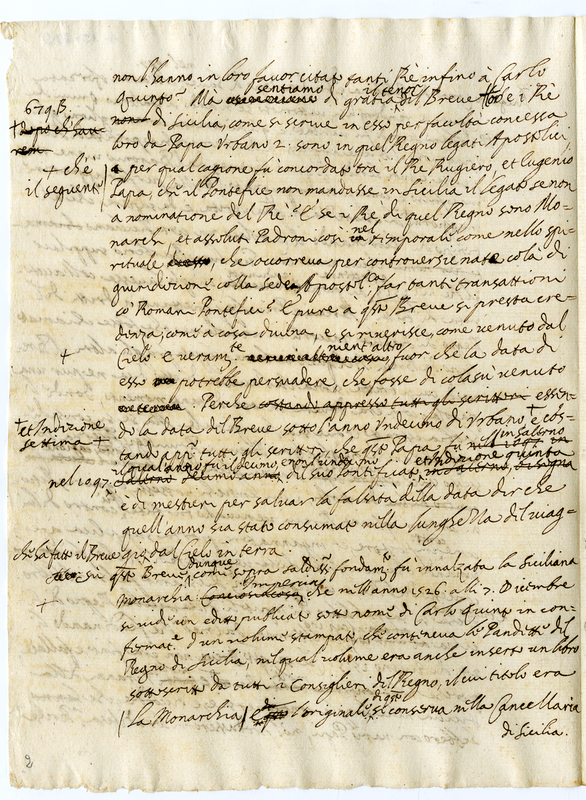 non l'hanno in loro favor citato tanti Rè infino à Carlo
Quinto? Mà sentiamo di gratia il tenor del Breve. E i Rè
di Sicilia, come si scrive in esso, per facultà concessa
loro da Papa Urbano 2. sono in quel Regno legati Apostolici
per qual cagione fù concordato tra il Rè Rugiero, et Eugenio
Papa, che il Pontefice non mandasse in Sicilia il legato se non
a nominatione del Rè? E se i Rè di quel Regno sono Mo-
narchi, et assoluti Padroni così nel temporale come nello spi-
rituale, che occorreva per controversie nate colà di
giuriditione colla sede Apostol.ca far tante transattioni
co' Romani Pontefici? E pure à q.sto Breve si presta cre-
denza, come à cosa divina, e si riverisce, come venuto dal
Cielo. E veram.te nient'altro fuor che la data di
esso potrebbe persuadere, che fosse di colasù venuto
Perche costando appresso tutti gli scrittori essen-
do la data del Breve sotto l'anno Undecimo di Urbano + e cos-
tando app.o tutti gli scrittori, che q.sto Papa fù in Salerno
nel 1097. il qual anno fù il decimo, e non l'undecimo del suo Pontificato, et Inditione quinta
è di mestieri per salvar la falsità della data dir che
quell'anno sia stato consumato nella lunghezza del viag-
gio dal Cielo in terra.
sù q.sto Breve dunque come sopra saldiss.o fondam.to fù innalzata la Siciliana
Monarchia. Imperciò che nell'anno 1526. alli 7. Dicembre
si vide un editto publicato sotto nome di Carlo Quinto in con-
fermat.e d'un volume stampato, che conteneva le Pandette del
Regno di Sicilia, nel qual volume era anche inserto un libro
sottoscritto da tutti i Consiglieri del Regno, il cui titolo era
(La Monarchia) l'originale di q.sto si conserva nella Cancellaria
di Sicilia.
679. B.
+ dopo ch'hau
rem
+ chè
il seguente
+
+ et Inditione
settima +
che hà fatto il Breve
+
2